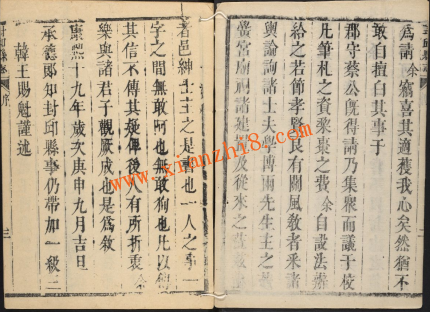 為請余竊喜其適獲我心矣然猶不
敢自擅白其事于
郡守蔡公旣得請乃集衆而議于校
凡筆札之資棗棗之費余自設法辦
給之若節孝賢良有關風敎者采諸
輿論詢諸士夫學博兩先生主之
黌宮廟祠諸建及從來之
著邑紳士主之是書也一人之事一
字之間無敢阿也無敢狥也凡以傳
其信不傳其疑俾後人有所折衷
樂與諸君子觀厥成也是爲敘
康熙十九年歲次庚申九月吉旦
承德郞知封邱縣事仍帶加一級
韓王賜魁謹述
序
三
www.kinmzhi8.com